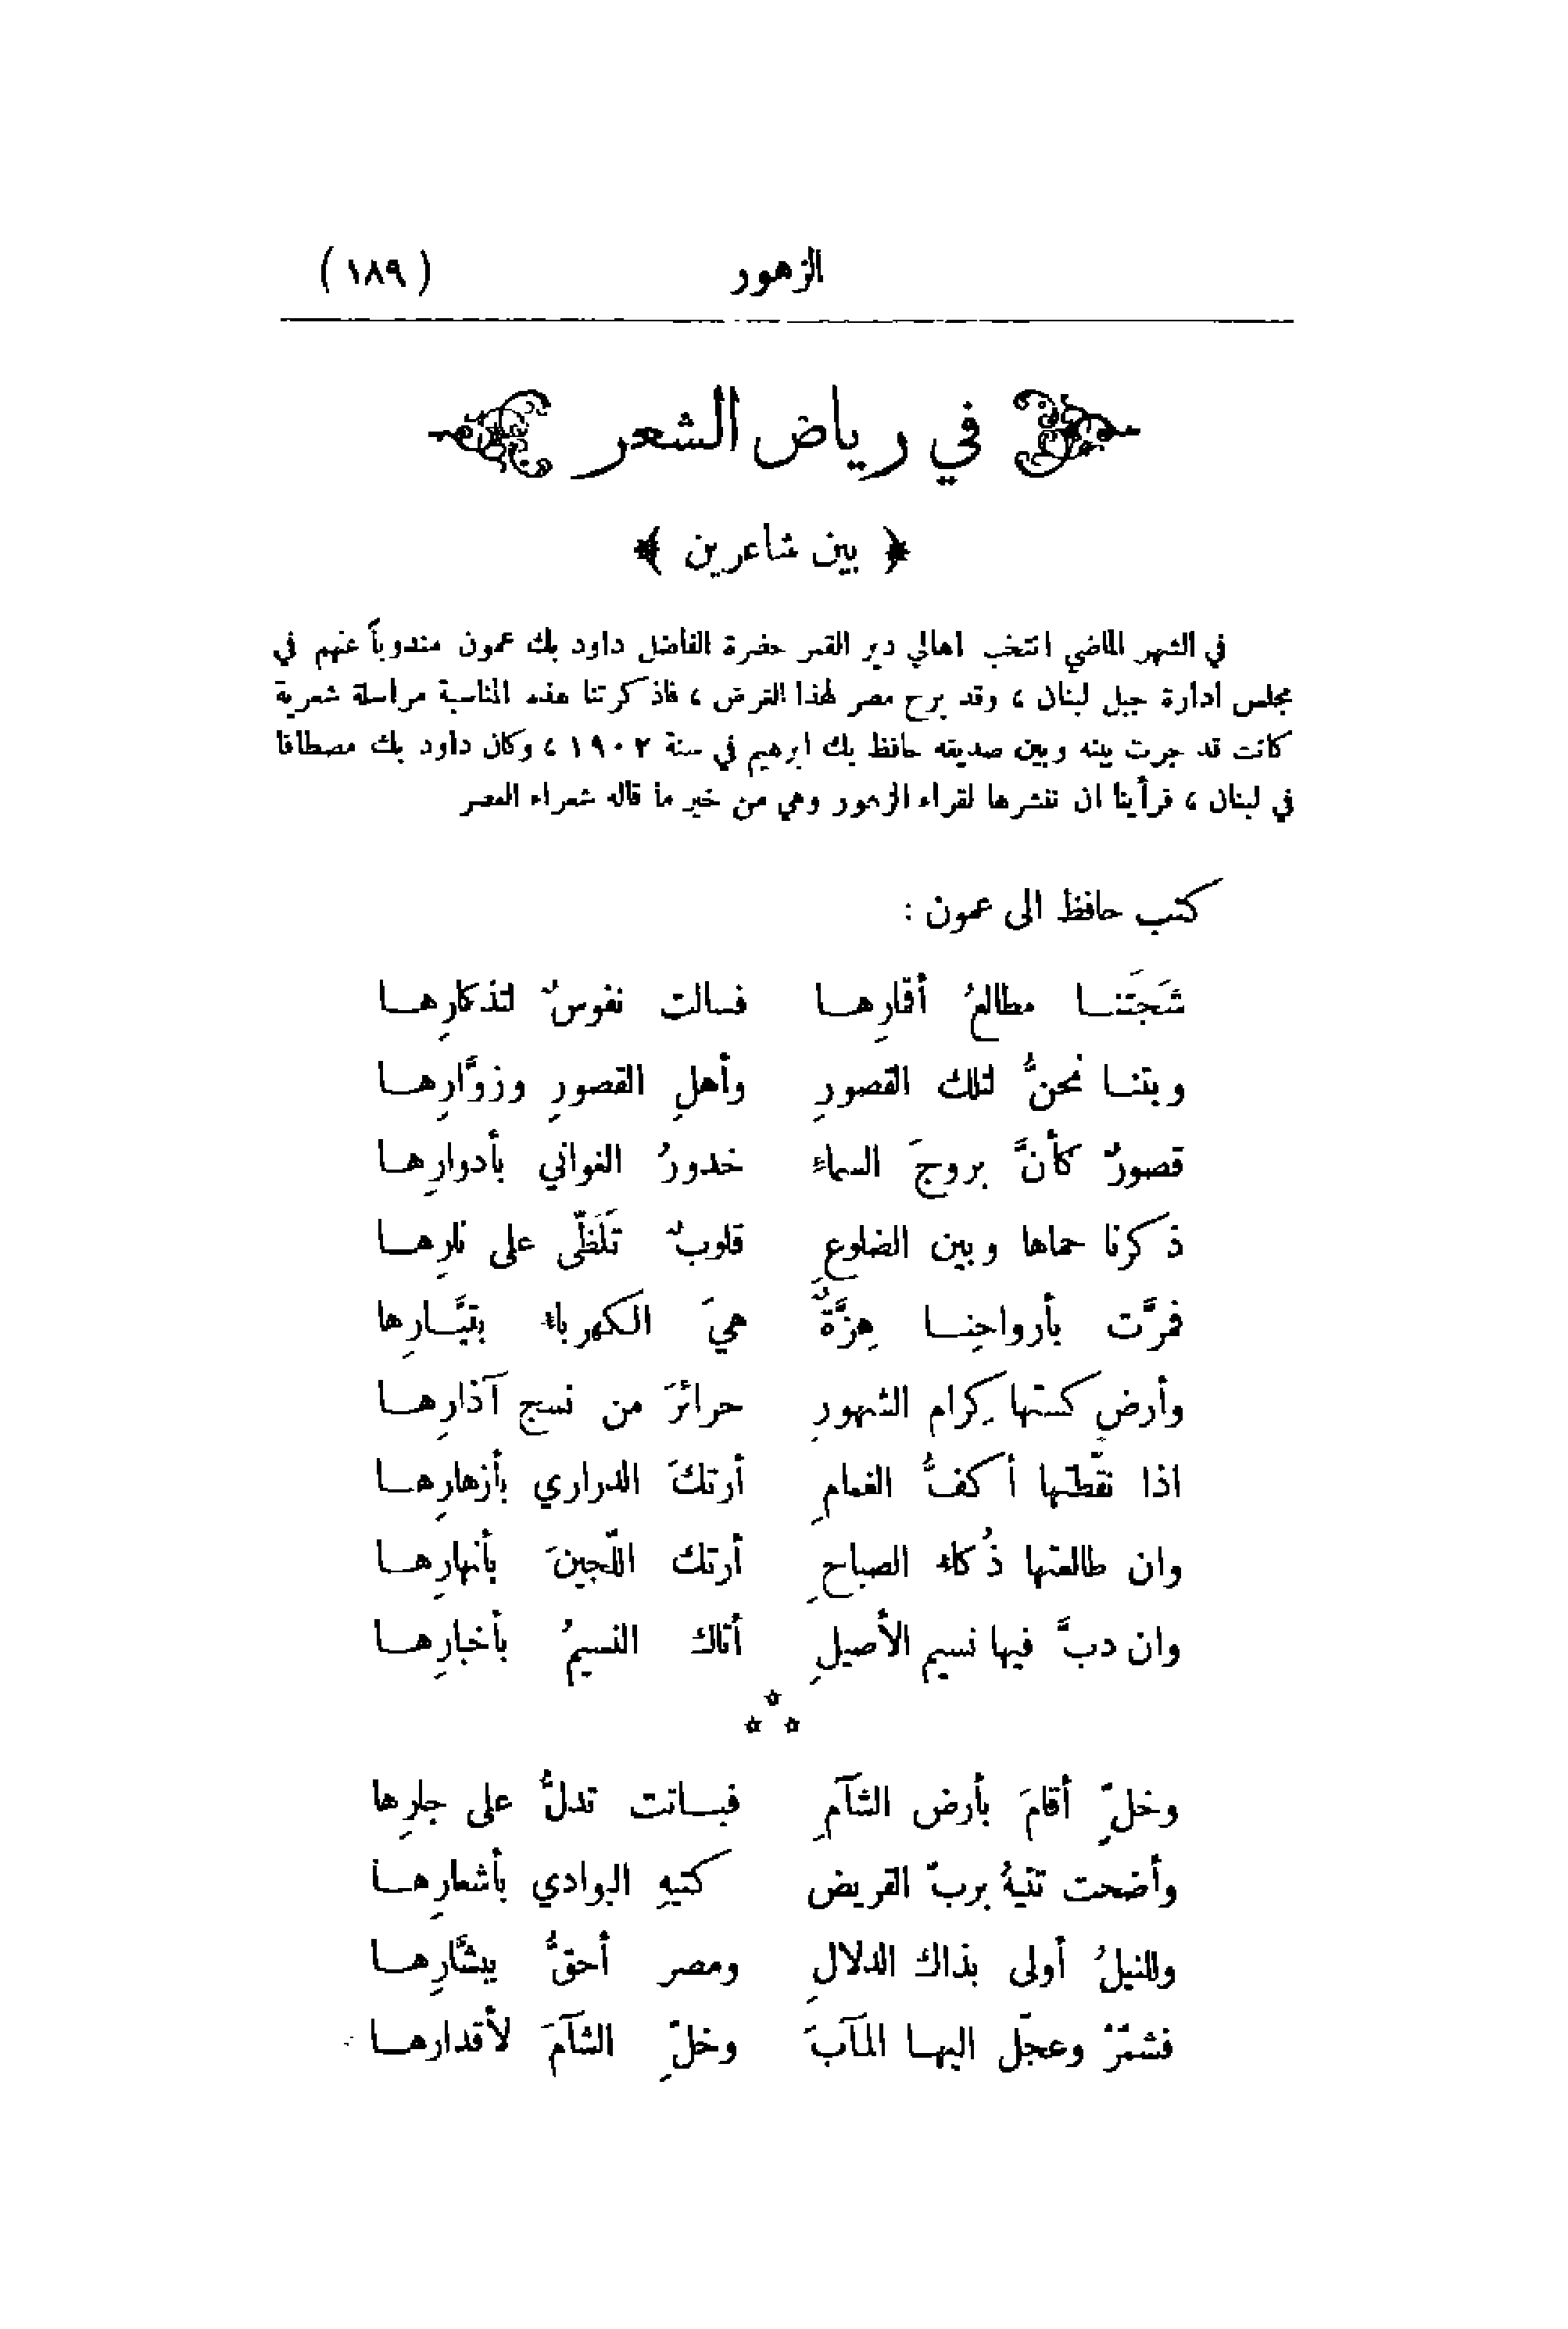 الزهور (١٨٩)
في رياض الشعر
﴿ بين شاعرين ﴾
في الشهر الماضي انتخب اهالي دير القمر حضرة الفاضل داود بك عمون مندوباً عنهم في
مجلس ادارة جبل لبنان ، وقد برح مصر لهذا الغرض ، فاذكرتنا هذه المناسبة مراسلة شعرية
كانت قد جرت بينه وبين صديقه حافظ بك ابرهيم في سنة ١٩٠٢ ، وكان داود بك مصطافا
في لبنان ، فرأينا ان ننشرها لقراء الزهور وهي من خير ما قاله شعراء العصر
كتب حافظ الى عمون :
شَجَتنـا مطالعُ أقمارِهـا فسالت نفوسٌ لتذكارِهـا
وبتنـا نحنُّ لتلك القصورِ وأهلِ القصورِ وزوَّارِهـا
قصورٌ كأنَّ بروجَ السماءِ خدورُ الغواني بأدوارِهـا
ذكرنا حماها وبين الضلوعِ قلوبٌ تَلَظّى على نارِهـا
فمرَّت بأرواحِنـا هِزَّةٌ هيَ الكهرباء بتيَّـارِها
وأرضٍ كستها كِرام الشهورِ حرائرَ من نسج آذارِهـا
اذا نقّطتها أكفُّ الغمامِ أرتكَ الدراري بأزهارِهـا
وان طالعتها ذُكاء الصباحِ أرتك اللّجينَ بأنهارِهـا
وان دبَّ فيها نسيم الأصيلِ أتاك النسيمُ بأخبارِهـا
* * *
وخلٍّ أقامَ بأرض الشآمِ فبـاتت تدلُّ على جارِها
وأضحت تتيهُ بربّ القريض كتيهِ البوادي بأشعارِهـا
وللنيلُ أولى بذاك الدلالِ ومصر أحقُّ ببشَّارِهـا
فشمّرْ وعجّل اليهـا المآبَ وخلِّ الشآمَ لأقدارهـا